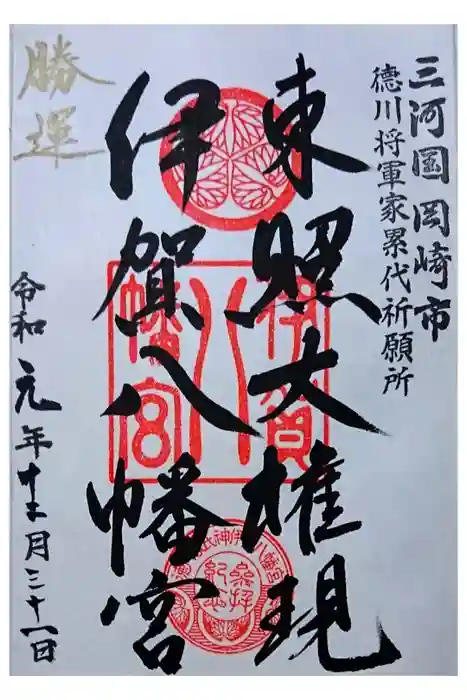 三河国岡崎市
徳川将軍家累代祈願所
東照大権現
伊賀八幡宮
勝運
令和元年十二月三十一日
伊賀
八
幡宮
参拝
紀念